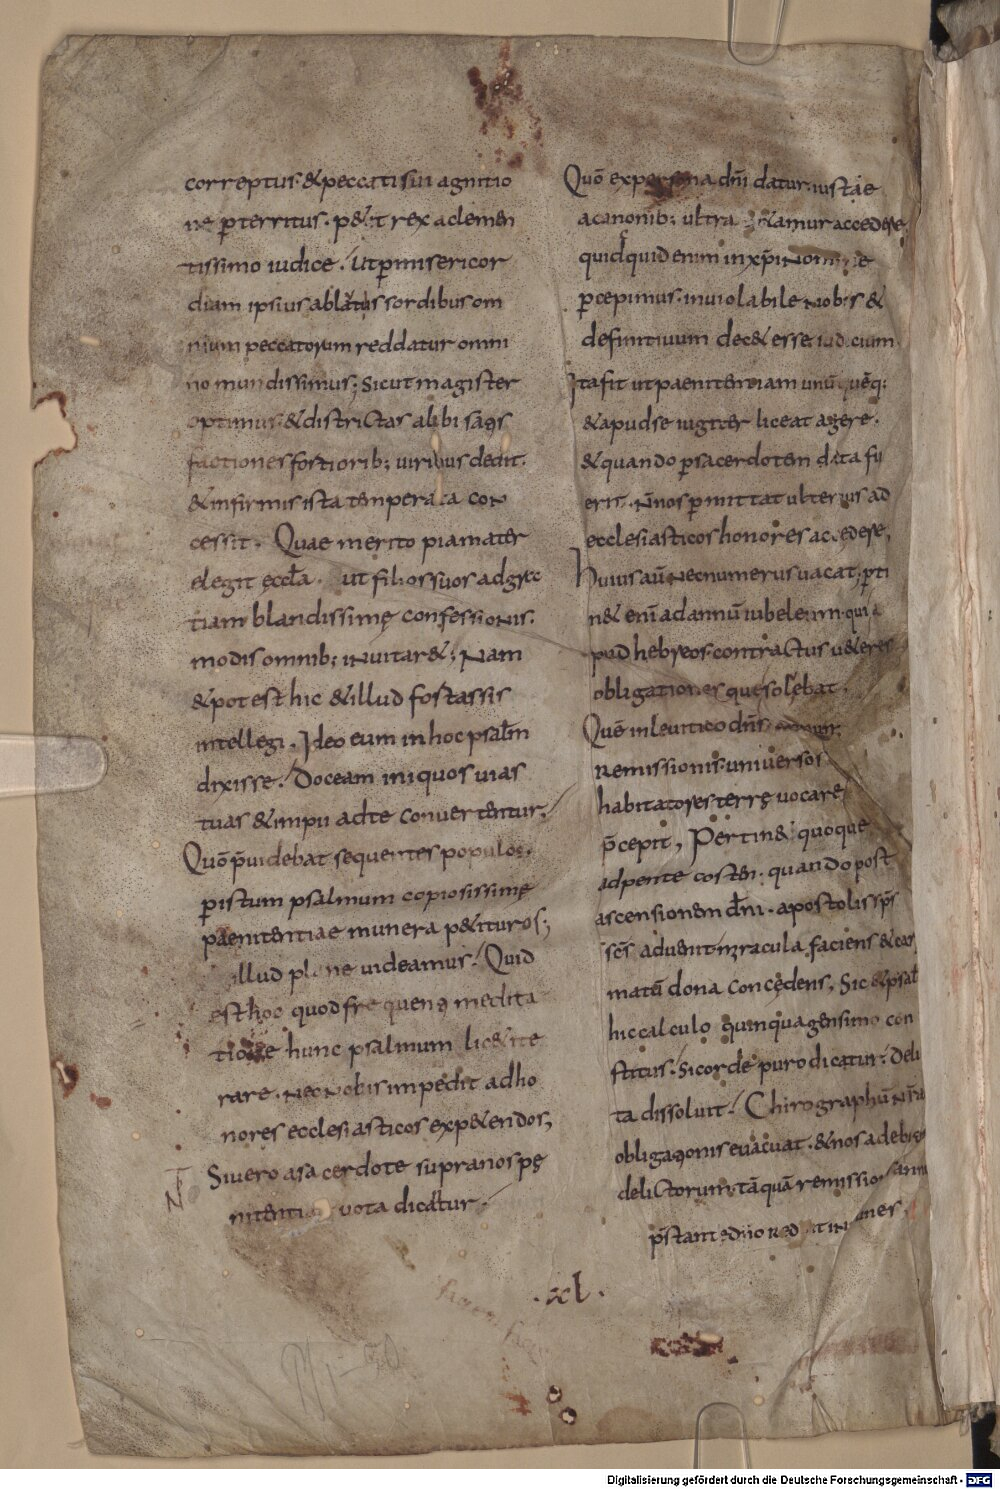 correptus· & peccati sui agnitio
ne ꝑterritus· p&it rex aclemen
tissimo iudice· Ut ꝑ misericor
diam ipsius ablatis sordibus om
nium peccatorum reddatur omni
no mundissimus; Sicut magister
optimus· & districtas alibi
factiones fortiorib; uiribus dedit·
& infirmis ista temperata con
cessit· Quae merito pia mater
elegit eccła· ut filios suos ad
tiam blandissimę confessionis·
modis omnib; inuitar&; Nam
& potest hic & illud fortassis
intellegi· Ideo eum in hoc psalm̄
dixisse· Doceam iniquos uias
tuas & impii ad te conuertentur·
Quō p̄uidebat sequentes populos·
ꝑ istum psalmum copiosissimę
paenitentiae munera p&ituros;
illud plane uideamus· Quid
est hoc quod frequens medita
tione hunc psalmum lic& ite
rare· Nec nobis impedit ad ho
nores ecclesiasticos exp&endos;
Si uero a sacerdote supra nos pę
nitentia uota dicatur·
Quō ex persona dn̄i datur· iustae
a canonib; ultra &amur accedere
quidquid enim in xp̄i nomine
ꝑcepimus· inuiolabile nobis &
definitiuum dec& esse iudicium
Ita fit ut paenitentiam unū quēq;
& apud se iugiter liceat agere·
& quando ꝑ sacerdotem data fu
erit· N̄ nos ꝑmittat ulterius ad
ecclesiasticos honores accedere;
Huius aū nec numerus uacat; ꝑti
n& enī ad annū iubeleum· qui a
pud hebreos· contractus u&eres
obligationes que solebat·
Quē in leuitico dn̄s
remissionis· uniuersos
habitatores terrę uocare
p̄cepit, Pertin& quoque
ad pente costen· quando post
ascensionem dn̄i· apostolis sp̄s
sc̄s aduenit miracula faciens &
matū dona concędens, Sic & psal
hic calculo quinquagensimo con
stitus· si corde puro dicatur· Deli
ta dissoluit· Chirographū nr̄a
obligationis euacuat· & nos a debi
delictorum· tāquā remission anni
p̄stante
·xl·
Digitalisierung gefördert durch die Deutsche Forschungsgemeinschaft - DFG